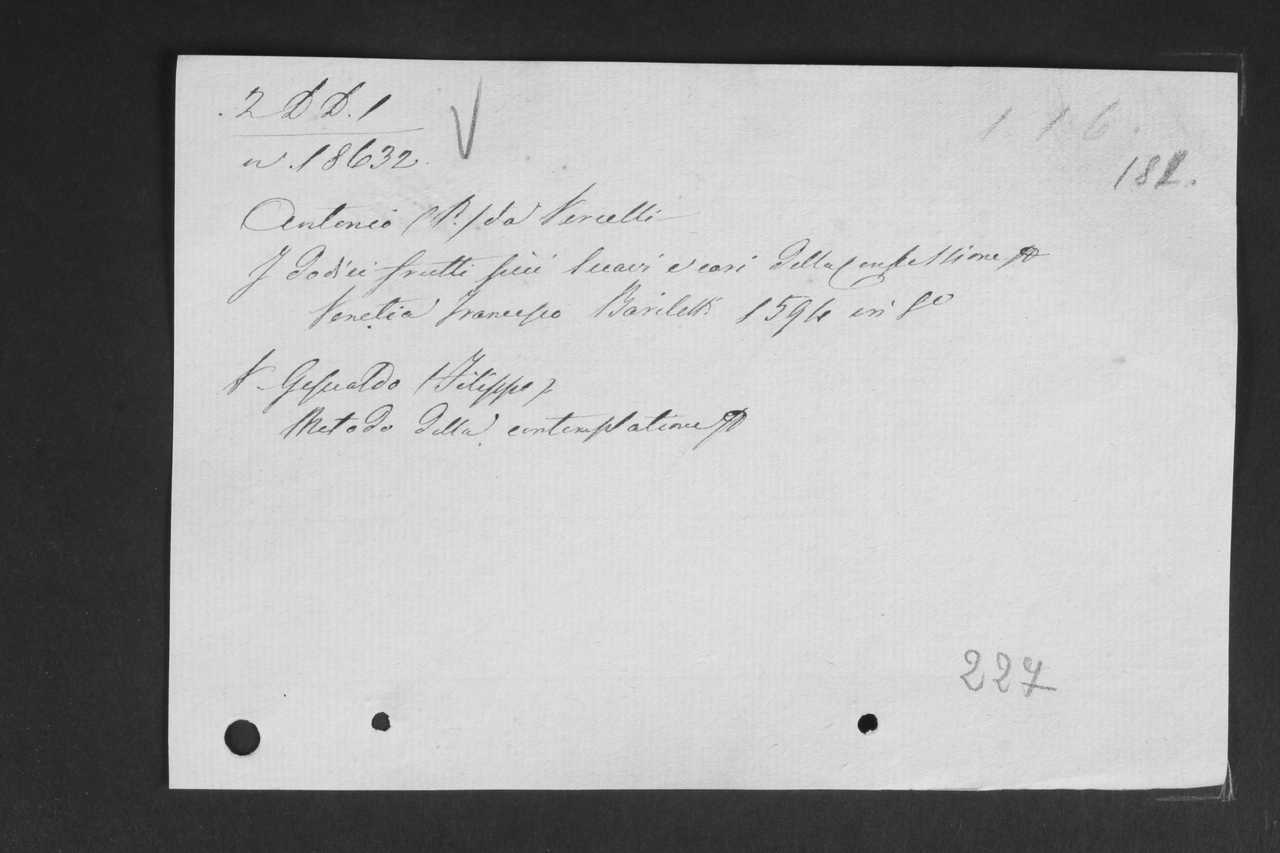 .2 D D. 1
V
n. 18632.
116.
182.
Antonio (P.) da Vercelli
I dodici frutti più suavi e cari della Confessione
Venetia Francesco Bariletti 1594 in 8º
V. Gesualdo (Filippo)
Metodo della contemplatione
227